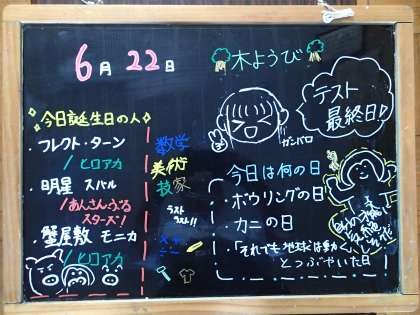 6月 22日 木ようび
今日誕生日の人
・フレクト・ターン
/ヒロアカ
・明星 スバル
/あんさんぶるスターズ!
・蟹屋敷 モニカ
/ヒロアカ
数学
美術
技家
ラスト
ラスト!!
ガンバロ
テスト
最終日!
今日は何の日
・ボウリングの日
・カニの日
・「それでも地球は動く」
とつぶやいた日